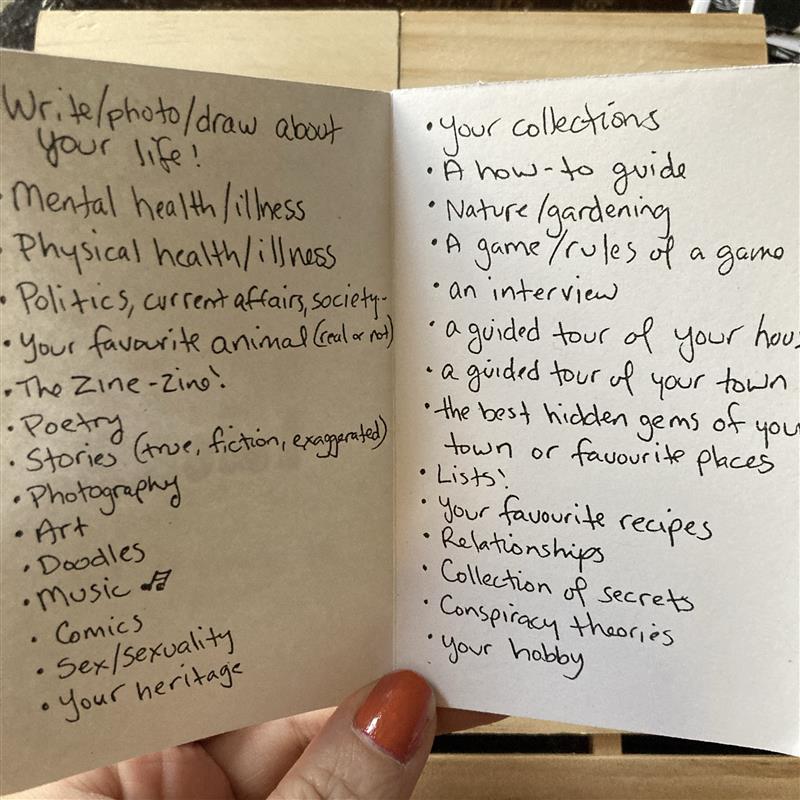 Write/photo/draw about
your life!
• Mental health/illness
• Physical health/illness
• Politics, current affairs, society-
• Your favourite animal (real or not)
• The Zine-Zine!
• Poetry
• Stories (true, fiction, exaggerated)
• Photography
• Art
• Doodles
• Music 🎵
• Comics
• Sex/sexuality
• Your heritage
• Your collections
• A how-to guide
• Nature/gardening
• A game/rules of a game
• an interview
• a guided tour of your hous
• a guided tour of your town
• the best hidden gems of you
town or favourite places
• Lists!
• Your favourite recipes
• Relationships
• Collection of secrets
• Conspiracy theories
• Your hobby